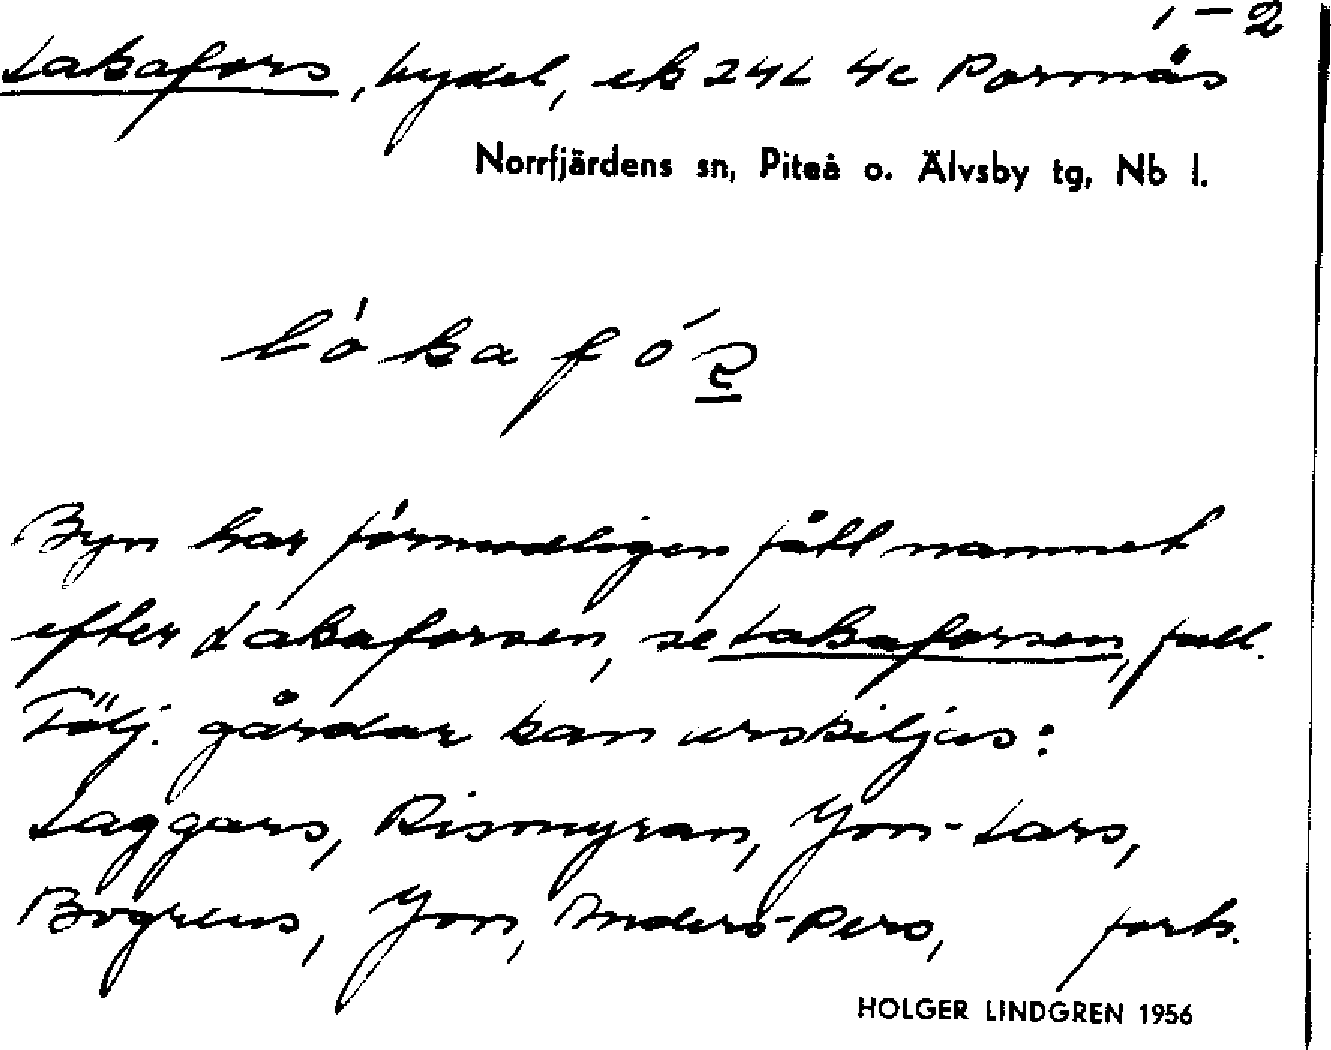 1-2
Lakafors, bydel, ek 24L 4c Porsnäs
Norrfjärdens sn, Piteå o. Älvsby tg, Nb l.
Byn har förmodligen fått namnet
efter Lakaforsen, se Lakaforsen, fall.
Följ. gårdar kan urskiljas:
Laggars, Rismyran, Jon-Lars,
Bogrens, Jon, Anders-Pers, forts.
HOLGER LINDGREN 1956